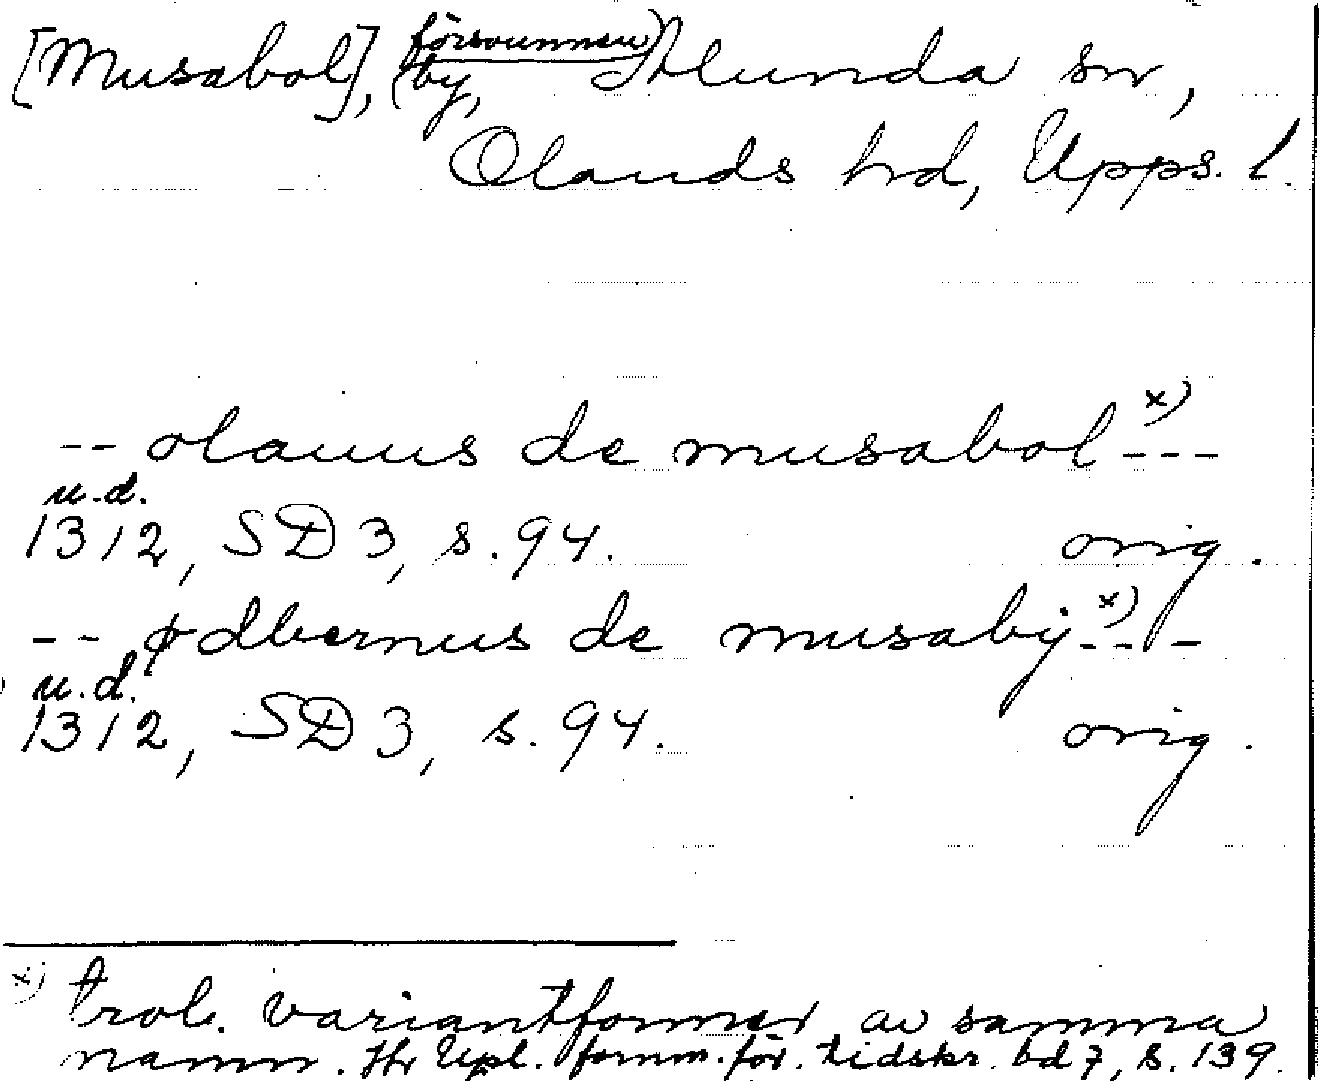 [Musabol], (försvunnen) by, Alunda sn,
Olands hd, Upps. l.
-- olauus de musabol x) ---
u.d.
1312, SD 3, s. 94. orig.
-- ødbernus de musabÿ x) ---
u.d.
1312, SD 3, s. 94. orig.
x) trol. variantformer av samma
namn. Jfr Upl. fornm. för. tidskr. bd 7, s. 139.